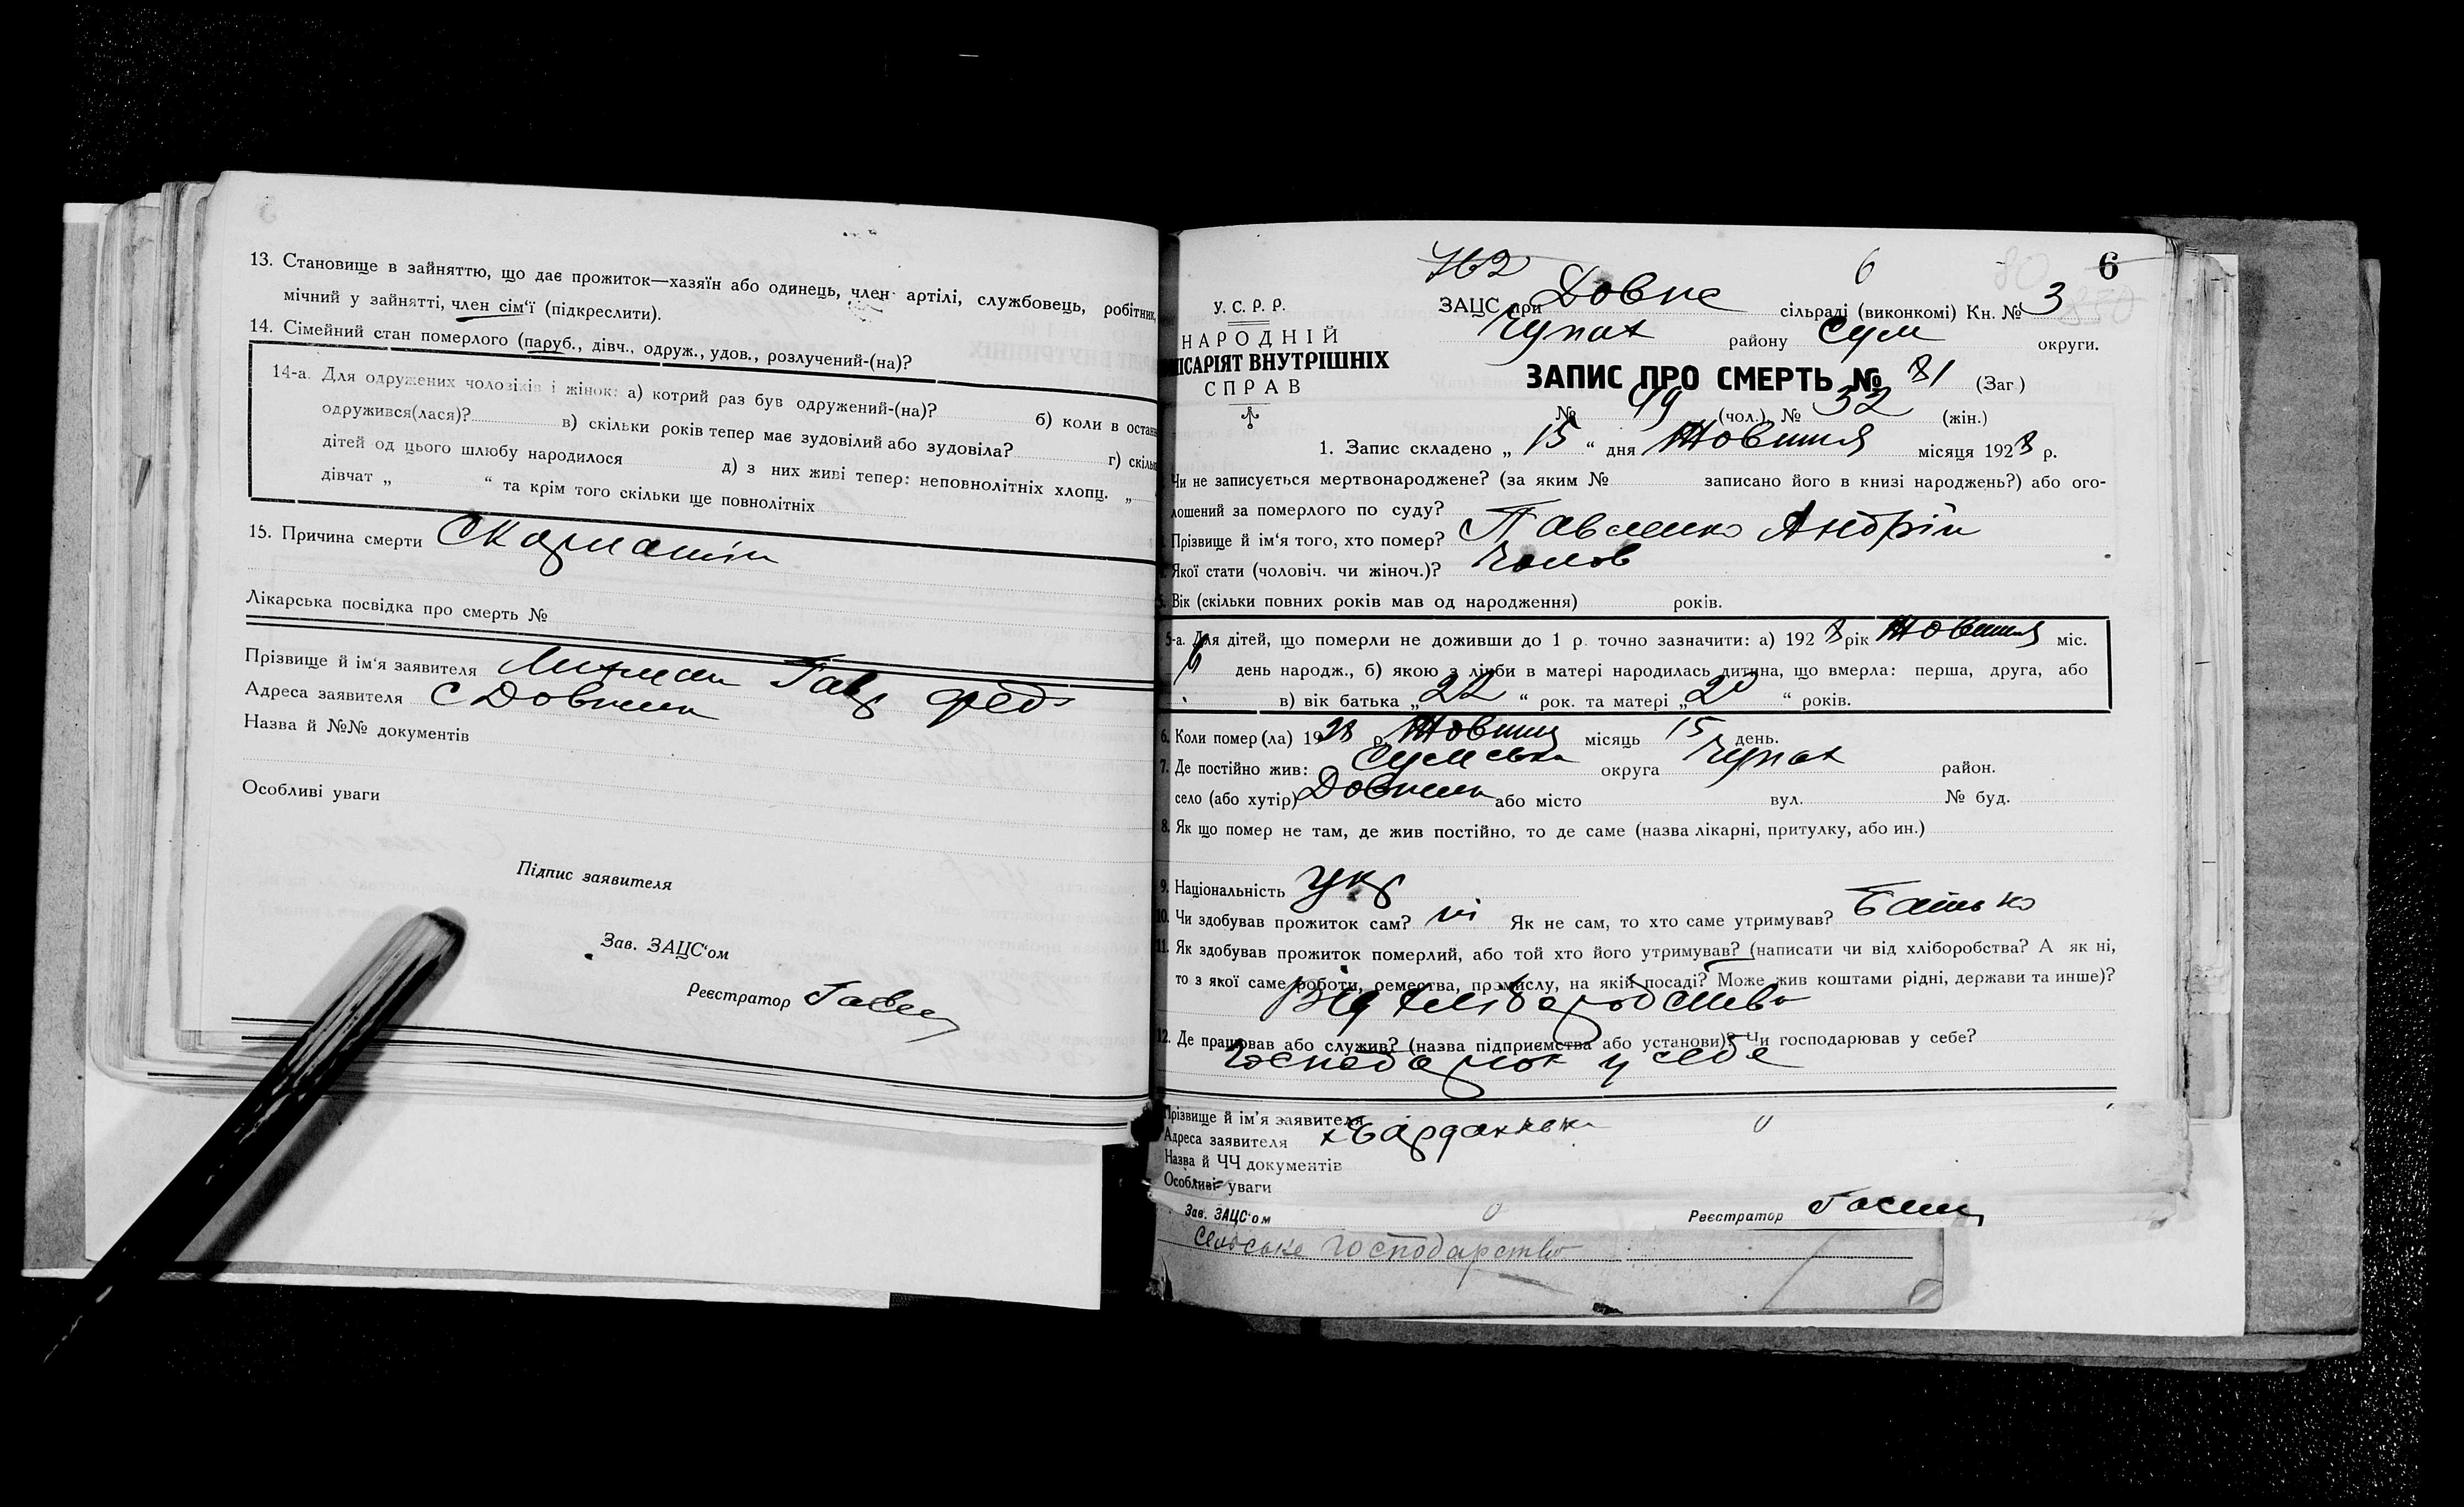 13. Становище в зайняттю, що дає прожиток—хазяїн або одинець, член артілі, службовець, робітник,
мічний у зайнятті, член сім'ї (підкреслити).
14. Сімейний стан померлого (паруб., дівч., одруж., удов., розлучений-(на)?
14-а. Для одружених чоловіків і жінок: а) котрий раз був одружений-(на)? б) коли в остан
одружився(лася)? в) скільки років тепер має зудовілий або зудовіла? г) скіль
дітей од цього шлюбу народилося д) з них живі тепер: неповнолітніх хлопц. „
дівчат „ “ та крім того скільки ще повнолітніх
15. Причина смерти Скарлатін
Лікарська посвідка про смерть №
Прізвище й ім'я заявителя Гавр Фед
Адреса заявителя с Довжик
Назва й №№ документів
Особливі уваги
Підпис заявителя
Зав. ЗАЦС'ом
Реєстратор
762 6 6
У.С.Р.Р.
НАРОДНІЙ
ІСАРІЯТ ВНУТРІШНІХ
СПРАВ
ЗАЦС при Довж сільраді (виконкомі) Кн. № 3
850
району Сум округи.
ЗАПИС ПРО СМЕРТЬ № 81 (Заг.)
№ 49 (чол.), № 32 (жін.)
1. Запис складено „ 15 “ дня Жовтня місяця 1928 р.
Чи не записується мертвонароджене? (за яким № записано його в книзі народжень?) або ого-
лошений за померлого по суду?
Прізвище й ім'я того, хто помер? Павленко Андрій
Якої стати (чоловіч. чи жіноч.)? Чолов
5. Вік (скільки повних років мав од народження) років.
5-а. Для дітей, що померли не доживши до 1 р. точно зазначити: а) 1928 рік Жовтня міс.
6 день народж., б) якою з лічби в матері народилась дитина, що вмерла: перша, друга, або
в) вік батька „ 22 “ рок. та матері „ 20 “ років.
6. Коли помер(ла) 1928 р. Жовтня місяць 15 день.
7. Де постійно жив: Сумська округа район.
село (або хутір) Довжик або місто вул. № буд.
8. Як що помер не там, де жив постійно, то де саме (назва лікарні, притулку, або ин.)
9. Національність Укр
10. Чи здобував прожиток сам? ні Як не сам, то хто саме утримував? Батько
11. Як здобував прожиток померлий, або той хто його утримував? (написати чи від хліборобства? А як ні,
то з якої саме роботи, ремества, промислу, на якій посаді? Може жив коштами рідні, держави та инше)?
Від хліборобства
12. Де працював або служив? (назва підприємства або установи)? Чи господарював у себе?
Господарюв у себе
Прізвище й ім'я заявителя
Адреса заявителя
Назва й ЧЧ документів
Особливі уваги
Зав. ЗАЦС'ом Реєстратор
сельське господарство